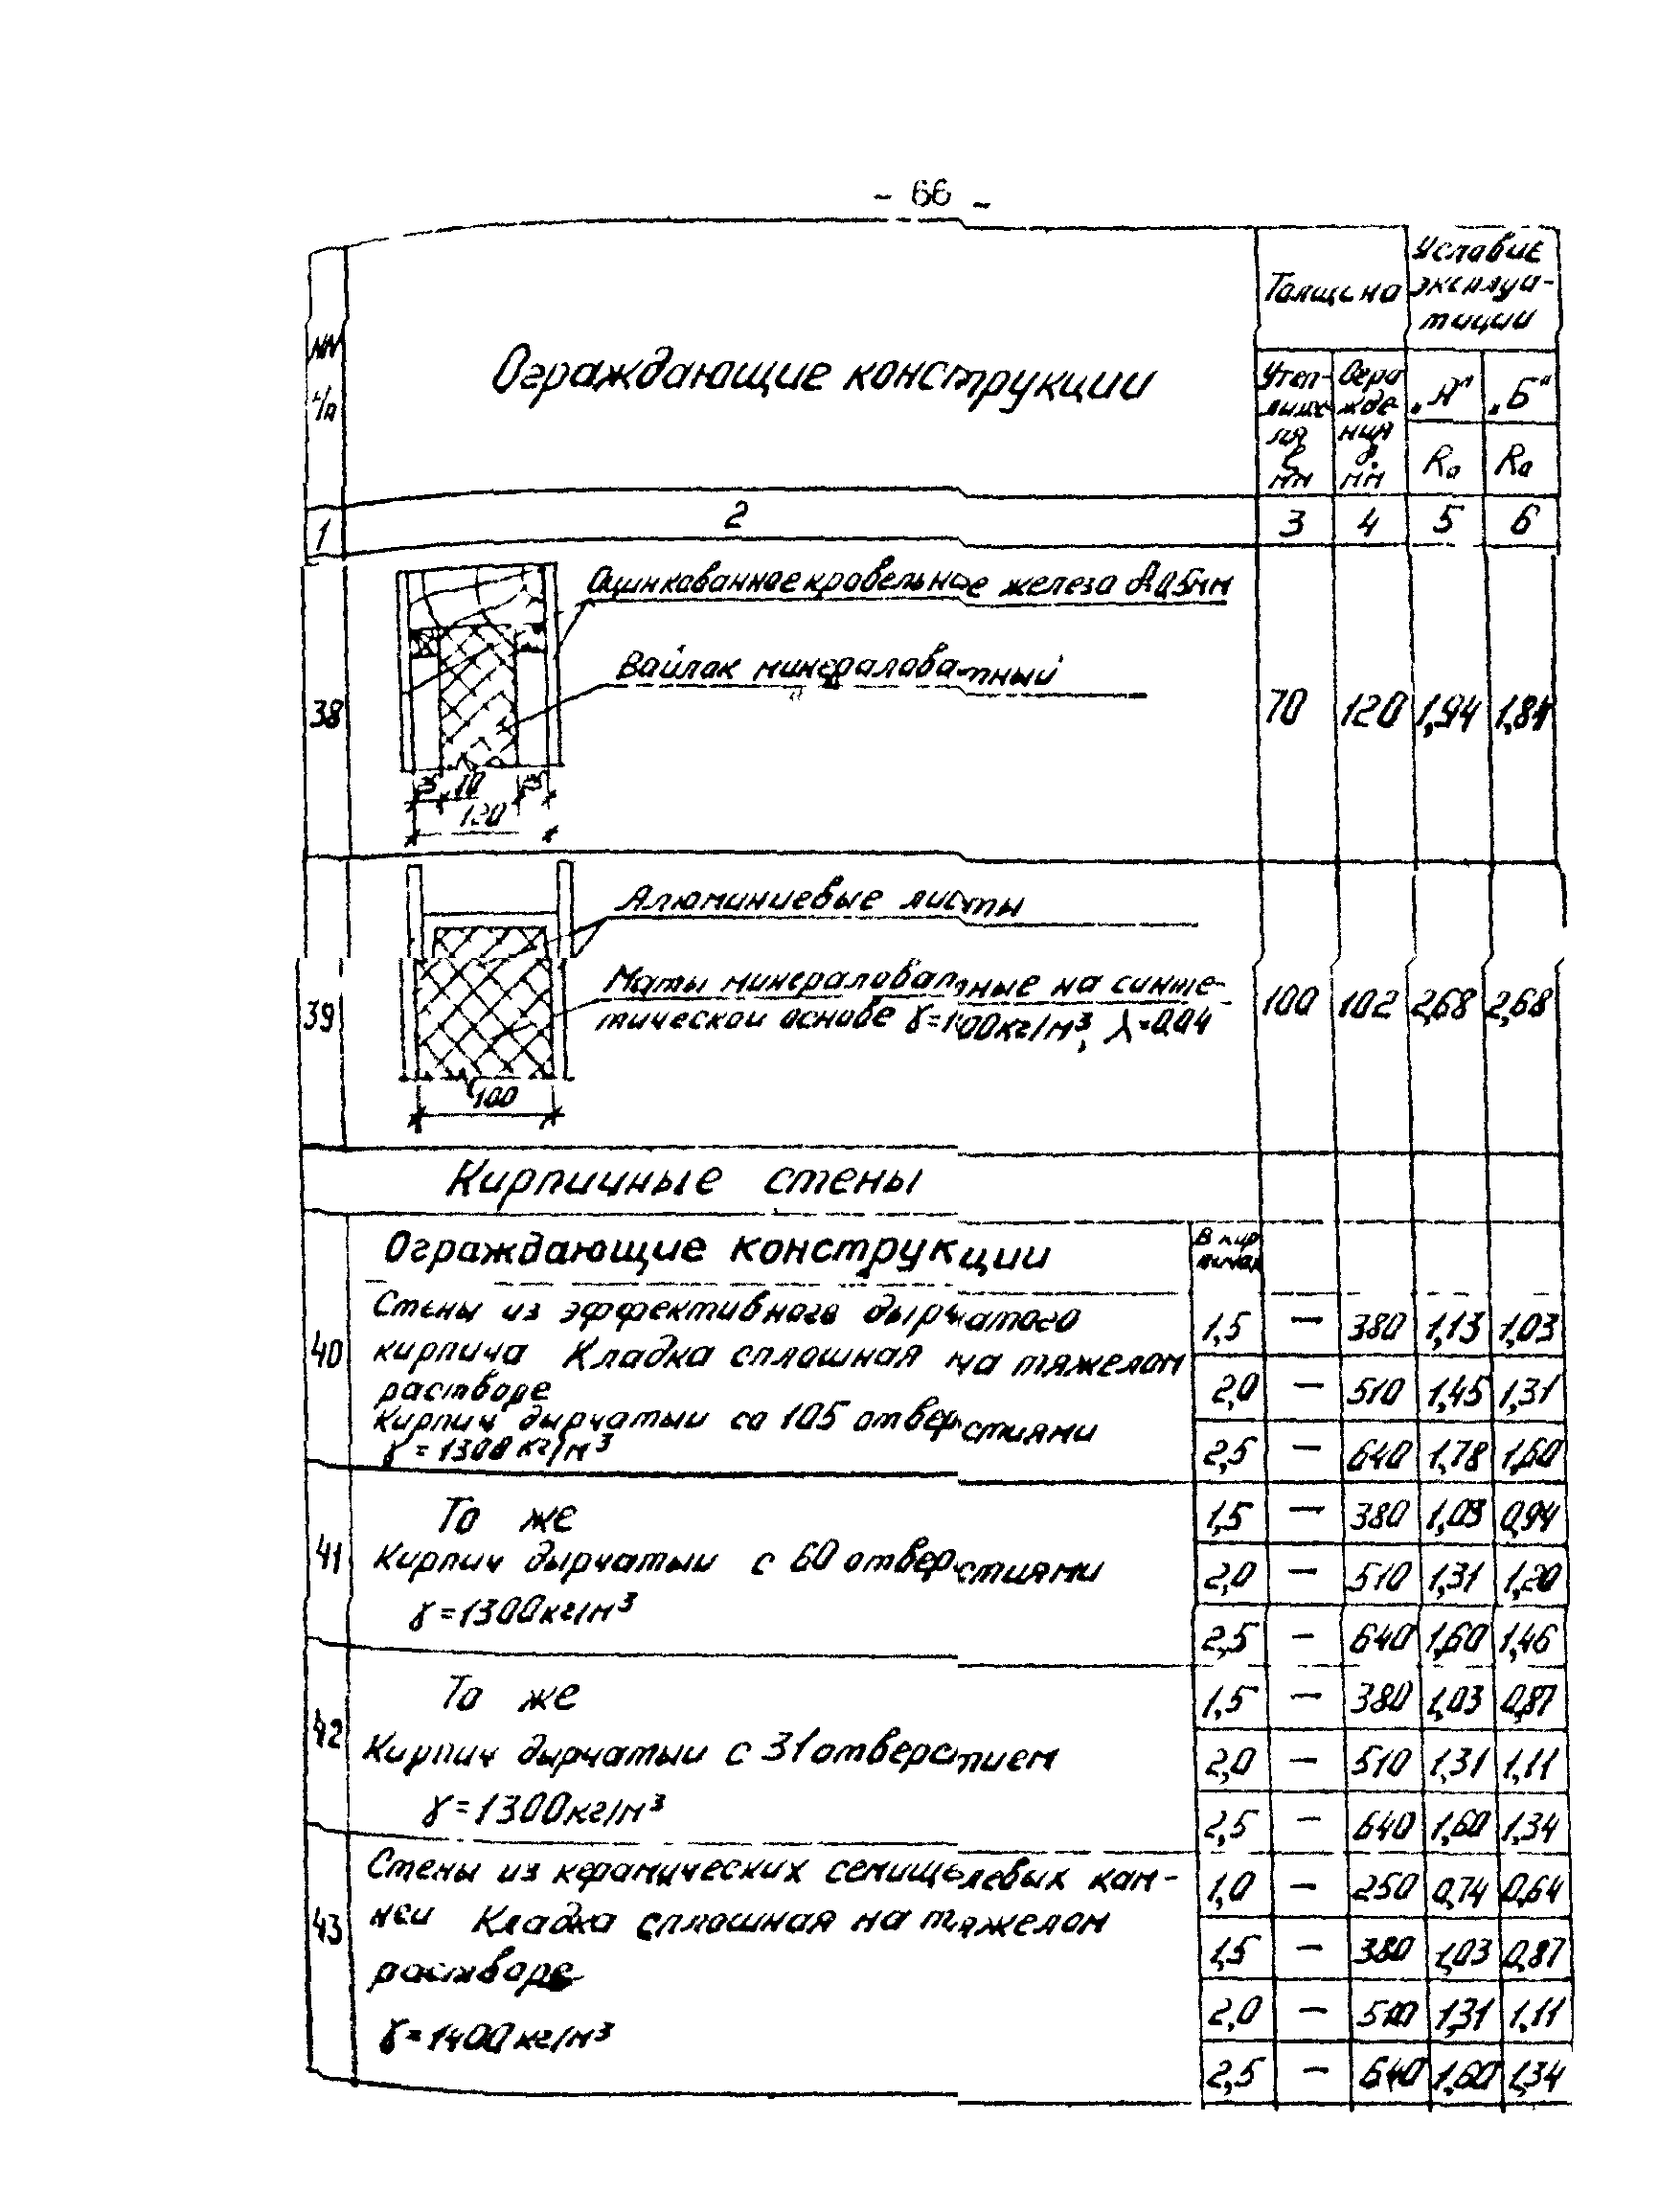 - 66 -
NN
п/п
Ограждающие конструкции
Толщина
Условие
эксплуа-
тации
Утеп-
лите-
ля
δ
мм
Огра
жде-
ния
δ.
мм
„А"
„Б"
R₀
R₀
1 2 3 4 5 6
38 Оцинкованное кровельное железо δ=0,5мм
Войлок минераловатный
70 120 1,94 1,84
25 70 25
120
39 Алюминиевые листы
Маты минераловатные на синте-
тической основе γ=100кг/м³, λ=0,04
100 102 2,68 2,68
100
Кирпичные стены
Ограждающие конструкции
В кир
пичах
40 Стены из эффективного дырчатого
кирпича Кладка сплошная на тяжелом
растворе
Кирпич дырчатый со 105 отверстиями
γ = 1300 кг/м³
1,5 — 380 1,13 1,03
2,0 — 510 1,45 1,31
2,5 — 640 1,78 1,60
41 То же
Кирпич дырчатый с 60 отверстиями
γ =1300кг/м³
1,5 — 380 1,03 0,94
2,0 — 510 1,31 1,20
2,5 — 640 1,60 1,46
42 То же
Кирпич дырчатый с 31 отверстием
γ =1300кг/м³
1,5 — 380 1,03 0,87
2,0 — 510 1,31 1,11
2,5 — 640 1,60 1,34
43 Стены из керамических семищелевых кам-
ней Кладка сплошная на тяжелом
растворе
γ = 1400 кг/м³
1,0 — 250 0,74 0,64
1,5 — 380 1,03 0,87
2,0 — 510 1,31 1,11
2,5 — 640 1,60 1,34